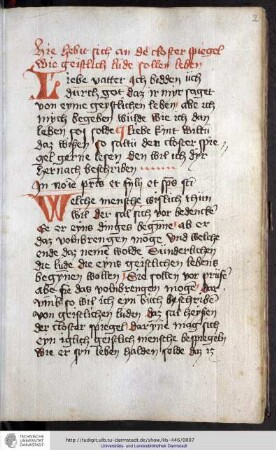 2
Hie hebit sich an der closter spiegel
wie geistlich lude sollen leben
Liebe vatter ich bidden uch
durch got daz ir myr saget
von eyme geystlichen leben abe ich
mych begeben wulde wie ich dan
leben solde Liebe kint wiltu
daz wißen so saltu den closter spie
gel gerne lesen den wil ich dyr
her nach beschriben
In noie pris et filij et sps sti
Welche mensche wislich thun
wil der sal sich vor bedencke
Ee er eyns dinges begyne ab er
daz volnbrengen moge und welche
ende daz neme wolde Sunderlichen
die lude die eyns geistlichen lebens
begynen wollen Die sollen vor prufe
abe sie das volnbrengen moge dar
umb so wil ich eyn buch beschribe
von geistlichen luden daz sal heyßen
der closter spiegel dar yne mag sich
eyn iglich geistlich mensche bespiegeln
wie er syn leben halden solde daz iz
TECHNISCHE UNIVERSITÄT DARMSTADT
http://tudigit.ulb.tu-darmstadt.de/show/Hs-446/0007
Universitäts- und Landesbibliothek Darmstadt